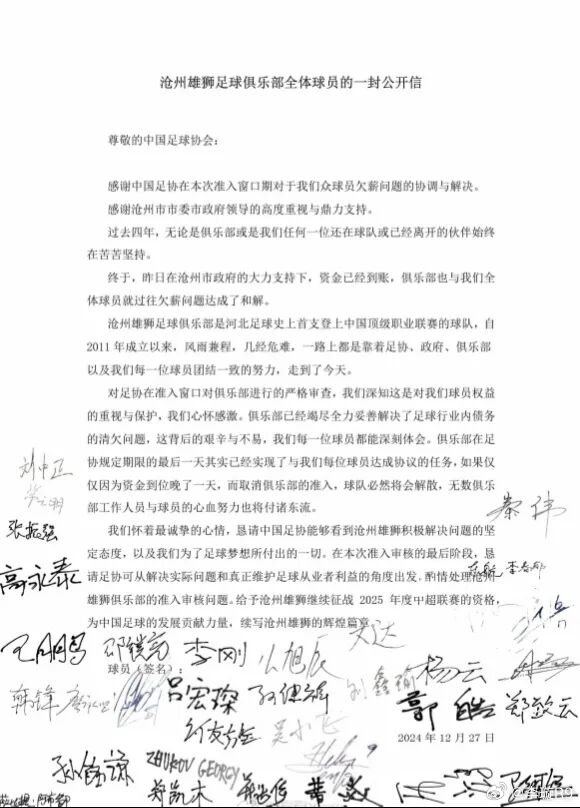 沧州雄狮足球俱乐部全体球员的一封公开信
尊敬的中国足球协会：
感谢中国足协在本次准入窗口期对于我们众球员欠薪问题的协调与解决。
感谢沧州市市委市政府领导的高度重视与鼎力支持。
过去四年，无论是俱乐部或是我们任何一位还在球队或已经离开的伙伴始终
在苦苦坚持。
终于，昨日在沧州市政府的大力支持下，资金已经到账，俱乐部也与我们全
体球员就过往欠薪问题达成了和解。
沧州雄狮足球俱乐部是河北足球史上首支登上中国顶级职业联赛的球队，自
2011年成立以来，风雨兼程，几经危难，一路上都是靠着足协、政府、俱乐部
以及我们每一位球员团结一致的努力，走到了今天。
对足协在准入窗口对俱乐部进行的严格审查，我们深知这是对我们球员权益
的重视与保护，我们心怀感激。俱乐部已经竭尽全力妥善解决了足球行业内债务
的清欠问题，这背后的艰辛与不易，我们每一位球员都能深刻体会。俱乐部在足
协规定期限的最后一天其实已经实现了与我们每位球员达成协议的任务，如果仅
仅因为资金到位晚了一天，而取消俱乐部的准入，球队必然将会解散，无数俱乐
部工作人员与球员的心血努力也将付诸东流。
我们怀着最诚挚的心情，恳请中国足协能够看到沧州雄狮积极解决问题的坚
定态度，以及我们为了足球梦想所付出的一切。在本次准入审核的最后阶段，恳
请足协可从解决实际问题和真正维护足球从业者利益的角度出发，酌情处理沧州
雄狮俱乐部的准入审核问题。给予沧州雄狮继续征战 2025 年度中超联赛的资格，
为中国足球的发展贡献力量，续写沧州雄狮的辉煌篇章
球员（签名）：
张振强
高永泰
秦伟
李春郁
李刚
韩锋
吕宏琛
孙健祥
刘鑫瑜
杨云
郭皓
郑致云
ZHUKOV GEORGY
郑凯木
2024年12月27日